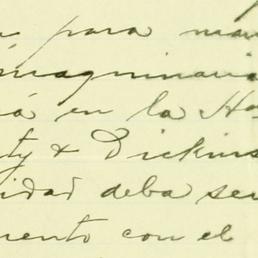 para man
maquinaria
á en la Ha
ty & Dickins
idad deba ser
mento con el